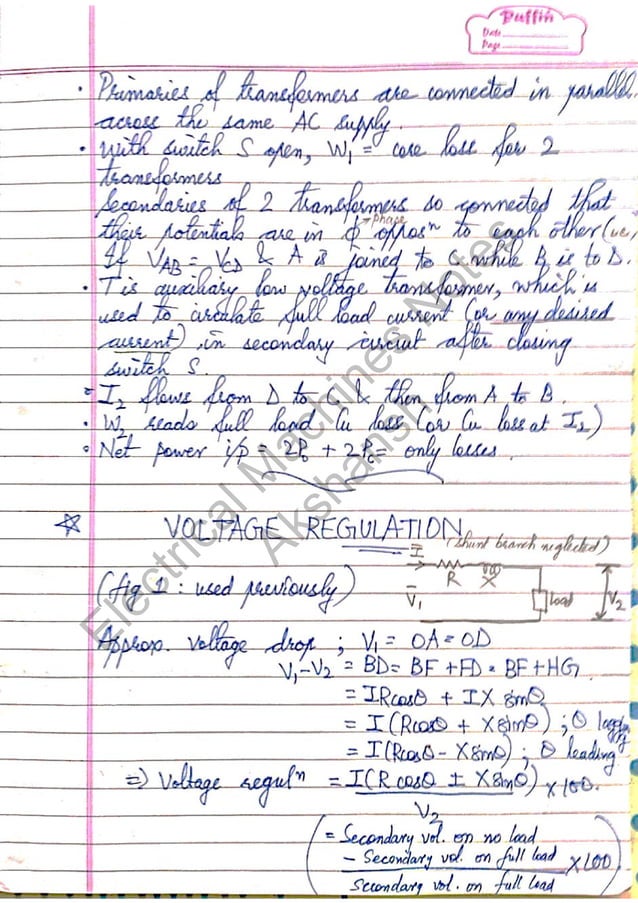 Puffin
Date
Page
• Primaries of transformers are connected in parallel
across the same AC supply.
• With switch S open, W₁ = core loss for 2
transformers
Secondaries of 2 transformers so connected that
their potentials are in φ opposⁿ to each other (ie,
→ phase
If V_AB = V_CD & A is joined to C while B is to D.
• T is auxiliary low voltage transformer, which is
used to circulate full load current (or any desired
current) in secondary circuit after closing
switch S.
• I₂ flows from D to C & then from A to B.
• W₂ reads full load Cu loss (or Cu loss at I₂)
• Net power i/p = 2P₀ + 2Pc = only losses.
Electrical Machines Notes
Akshansh
☆ VOLTAGE REGULATION
(shunt branch neglected)
I
R
X
V₁
Load
V₂
(fig 1 : used previously)
Approx. voltage drop ; V₁ = OA = OD
V₁-V₂ = BD = BF + FD = BF + HG
= IRcosθ + IX sinθ
= I(Rcosθ + Xsinθ) ; θ lagging
= I(Rcosθ - Xsinθ) ; θ leading
⇒ Voltage regulⁿ = I(Rcosθ ± Xsinθ) × 100.
V₂
(= Secondary vol. on no load
- Secondary vol. on full load × 100)
Secondary vol. on full load